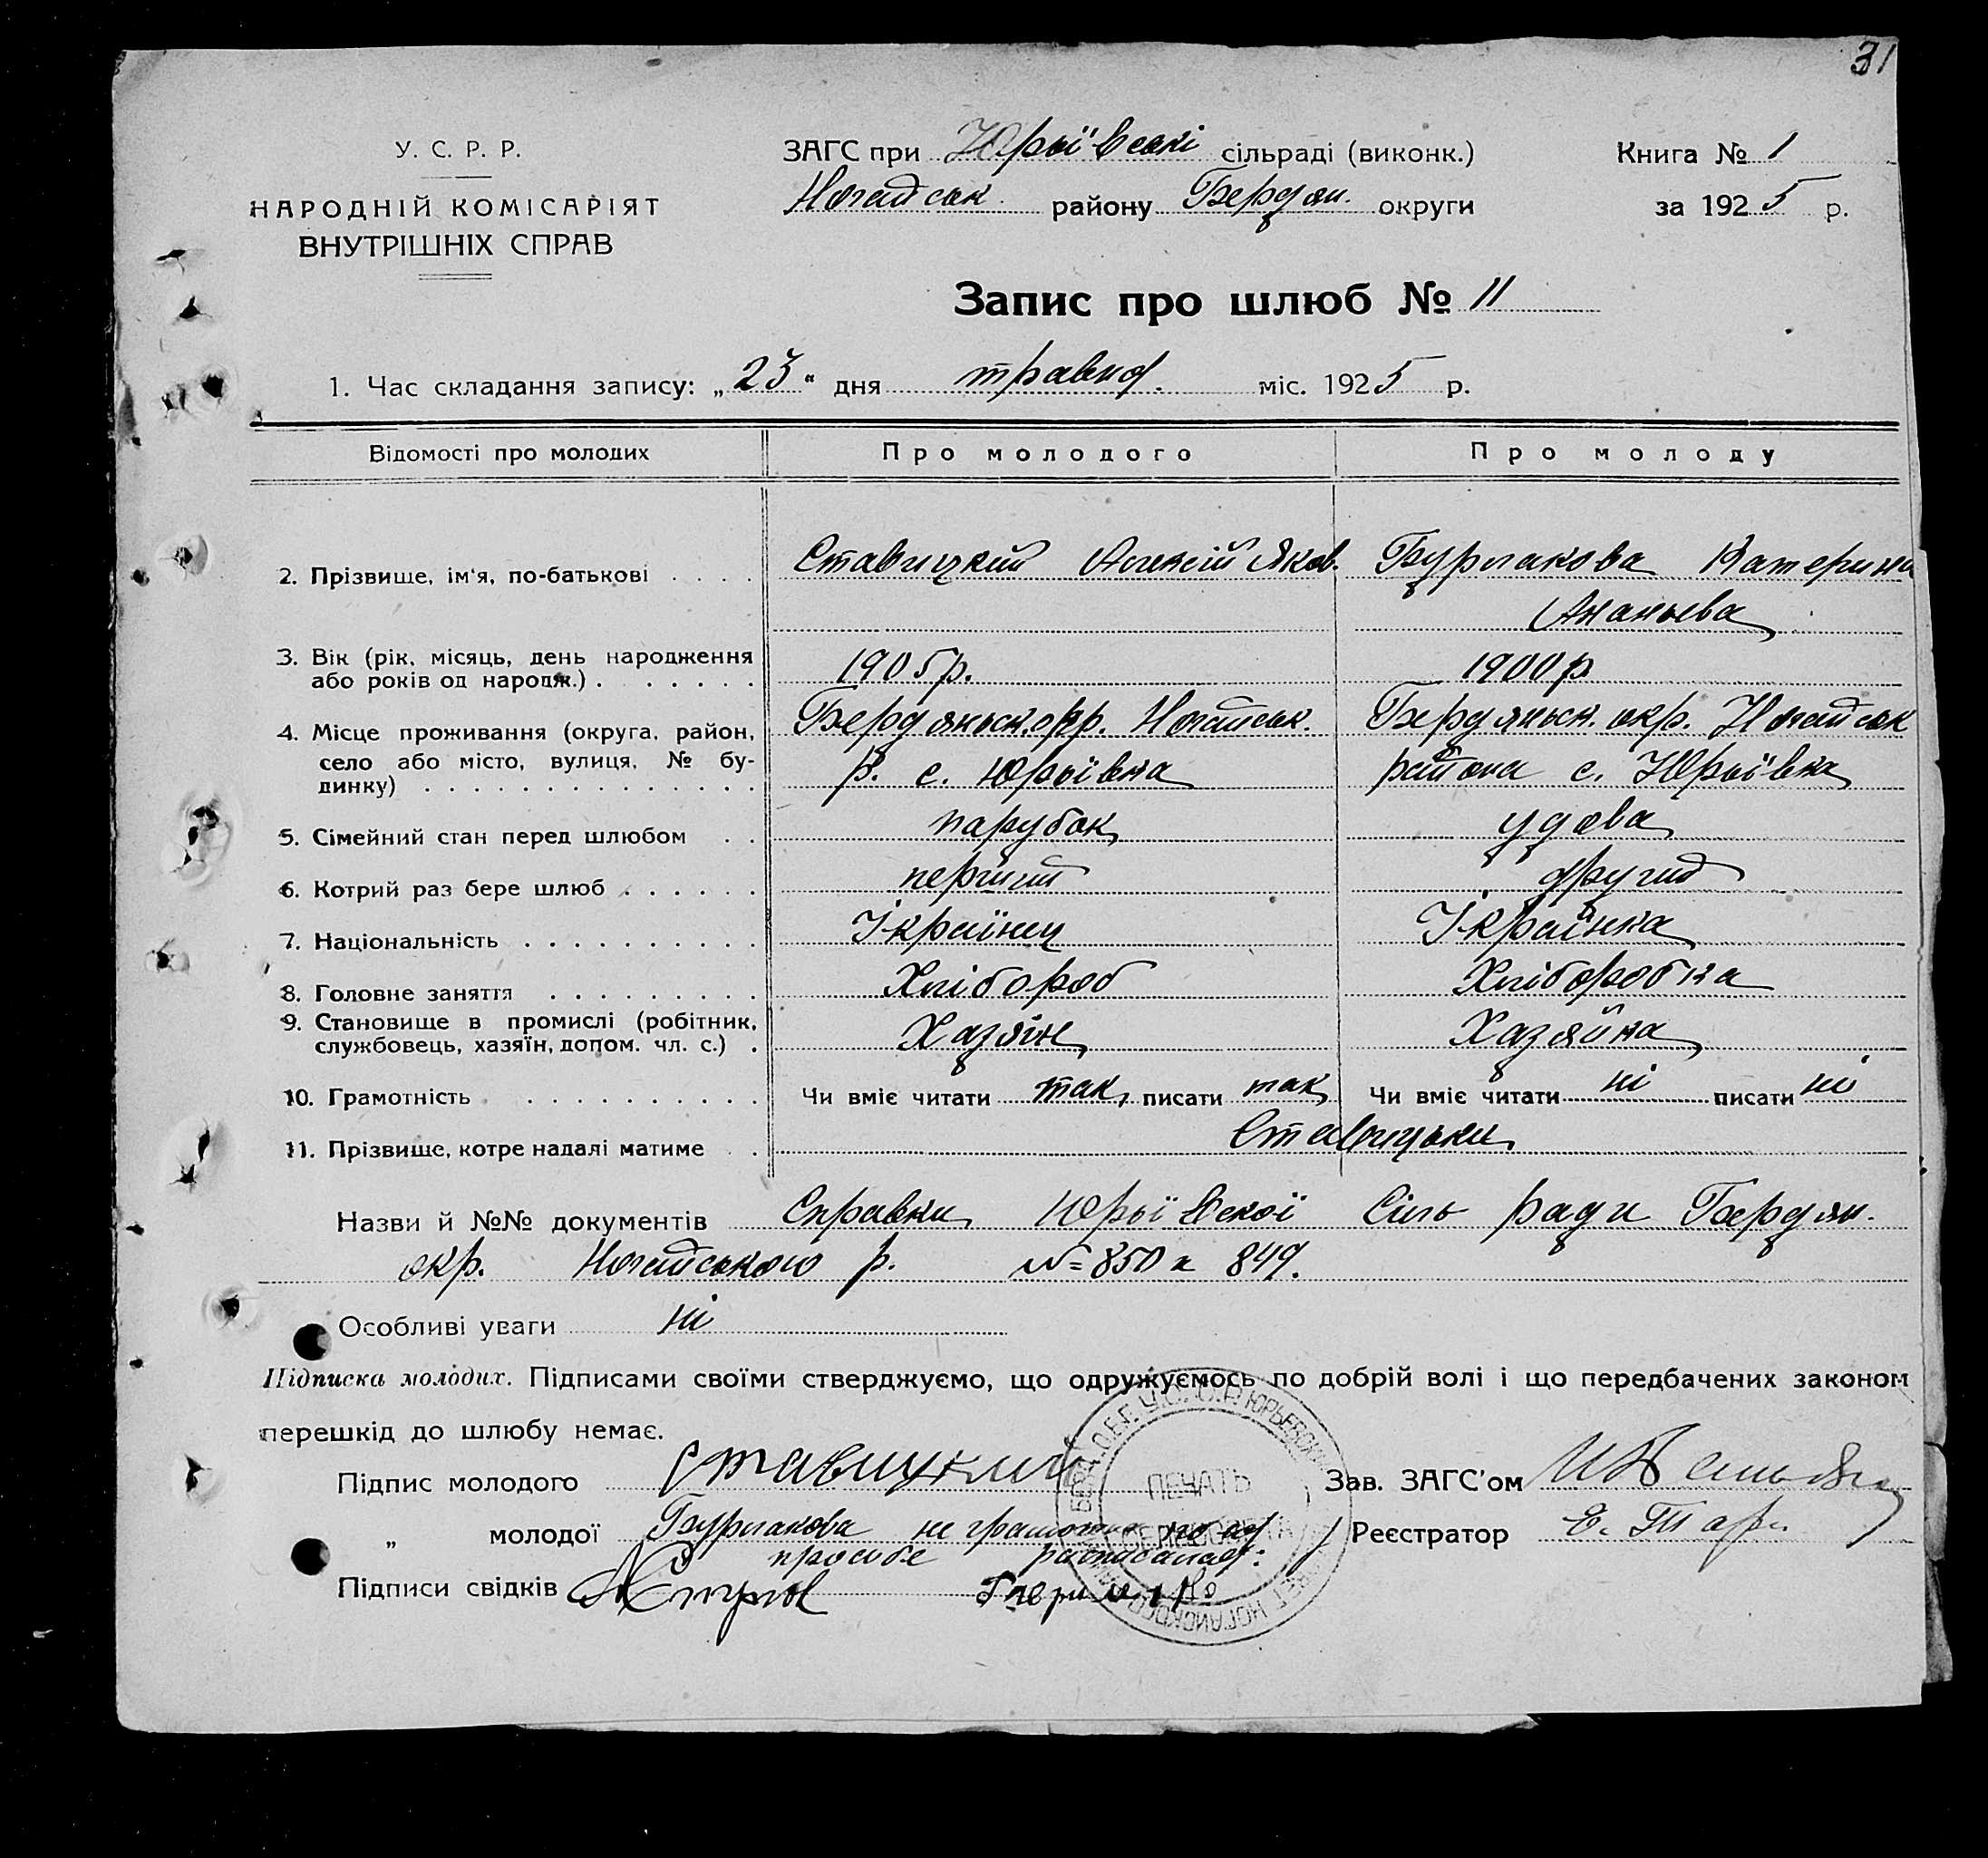 31
У. С. Р. Р.
НАРОДНІЙ КОМІСАРІЯТ
ВНУТРІШНІХ СПРАВ
ЗАГС при Юрыївскі сільраді (виконк.)
Ногайськ. району Бердян. округи
Книга № 1
за 1925 р.
Запис про шлюб № 11
1. Час складання запису: „23“ дня травня. міс. 1925 р.
Відомості про молодих Про молодого Про молоду
2. Прізвище, ім'я, по-батькові Ставицкий Алексій Яков. Бурлакова Катерина
Ананьева
3. Вік (рік, місяць, день народження
або років од народж.) 1905р. 1900р
4. Місце проживання (округа, район, Бердяньск. окр. Ногайськ. Бердяньск. окр. Ногайськ
село або місто, вулиця, № бу- р. с. Юрыївка района с. Юрыївка
динку)
5. Сімейний стан перед шлюбом парубок удова
6. Котрий раз бере шлюб перший другий
7. Національність Українец Українка
8. Головне заняття Хлібороб Хліборобка
9. Становище в промислі (робітник,
службовець, хазяїн, допом. чл. с.) Хазяін Хазяйка
10. Грамотність Чи вміє читати так, писати так Чи вміє читати ні писати ні
11. Прізвище, котре надалі матиме Ставицьки
Назви й №№ документів Справки Юрыївскої Сіль ради Бердян.
окр. Ногайського р. № 850 и 849.
Особливі уваги ні
Підписка молодих. Підписами своїми стверджуємо, що одружуємось по добрій волі і що передбачених законом
перешкід до шлюбу немає.
Підпис молодого Ставицкий Зав. ЗАГС'ом
„ молодої Бурлакова не грамотна по ея Реєстратор Е.
просьбе росписался:
Підписи свідків
ПЕЧАТЬ
СЕЛЬСОВЕТА